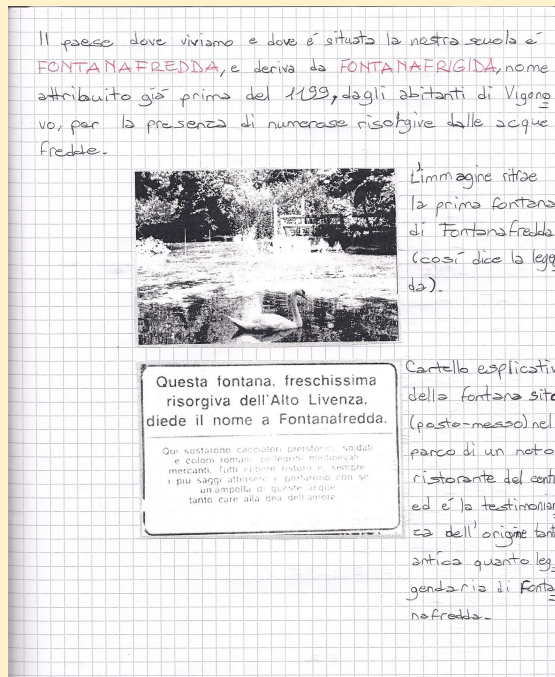 Il paese dove viviamo e dove é situata la nostra scuola é
FONTANAFREDDA, e deriva da FONTANAFRIGIDA, nome
attribuito giá prima del 1199, dagli abitanti di Vigono
vo, per la presenza di numerose risorgive dalle acque
fredde.
L'immagine ritrae
la prima fontana
di Fontanafredda
(cosí dice la legge
da).
Questa fontana, freschissima
risorgiva dell'Alto Livenza,
diede il nome a Fontanafredda.
Qui sostarono cacciatori preistorici, soldati
e coloni romani, pellegrini medioevali
mercanti. Tutti ebbero ristoro e, sempre
i più saggi attinsero e portarono con se
un'ampolla di queste acque
tanto care alla dea dell'amore
Cartello esplicativ
della fontana sito
(posto-messo) nel
parco di un noto
ristorante del cent
ed é la testimonian
za dell'origine tant
antica quanto leg
gendaria di Fonta
nafredda.